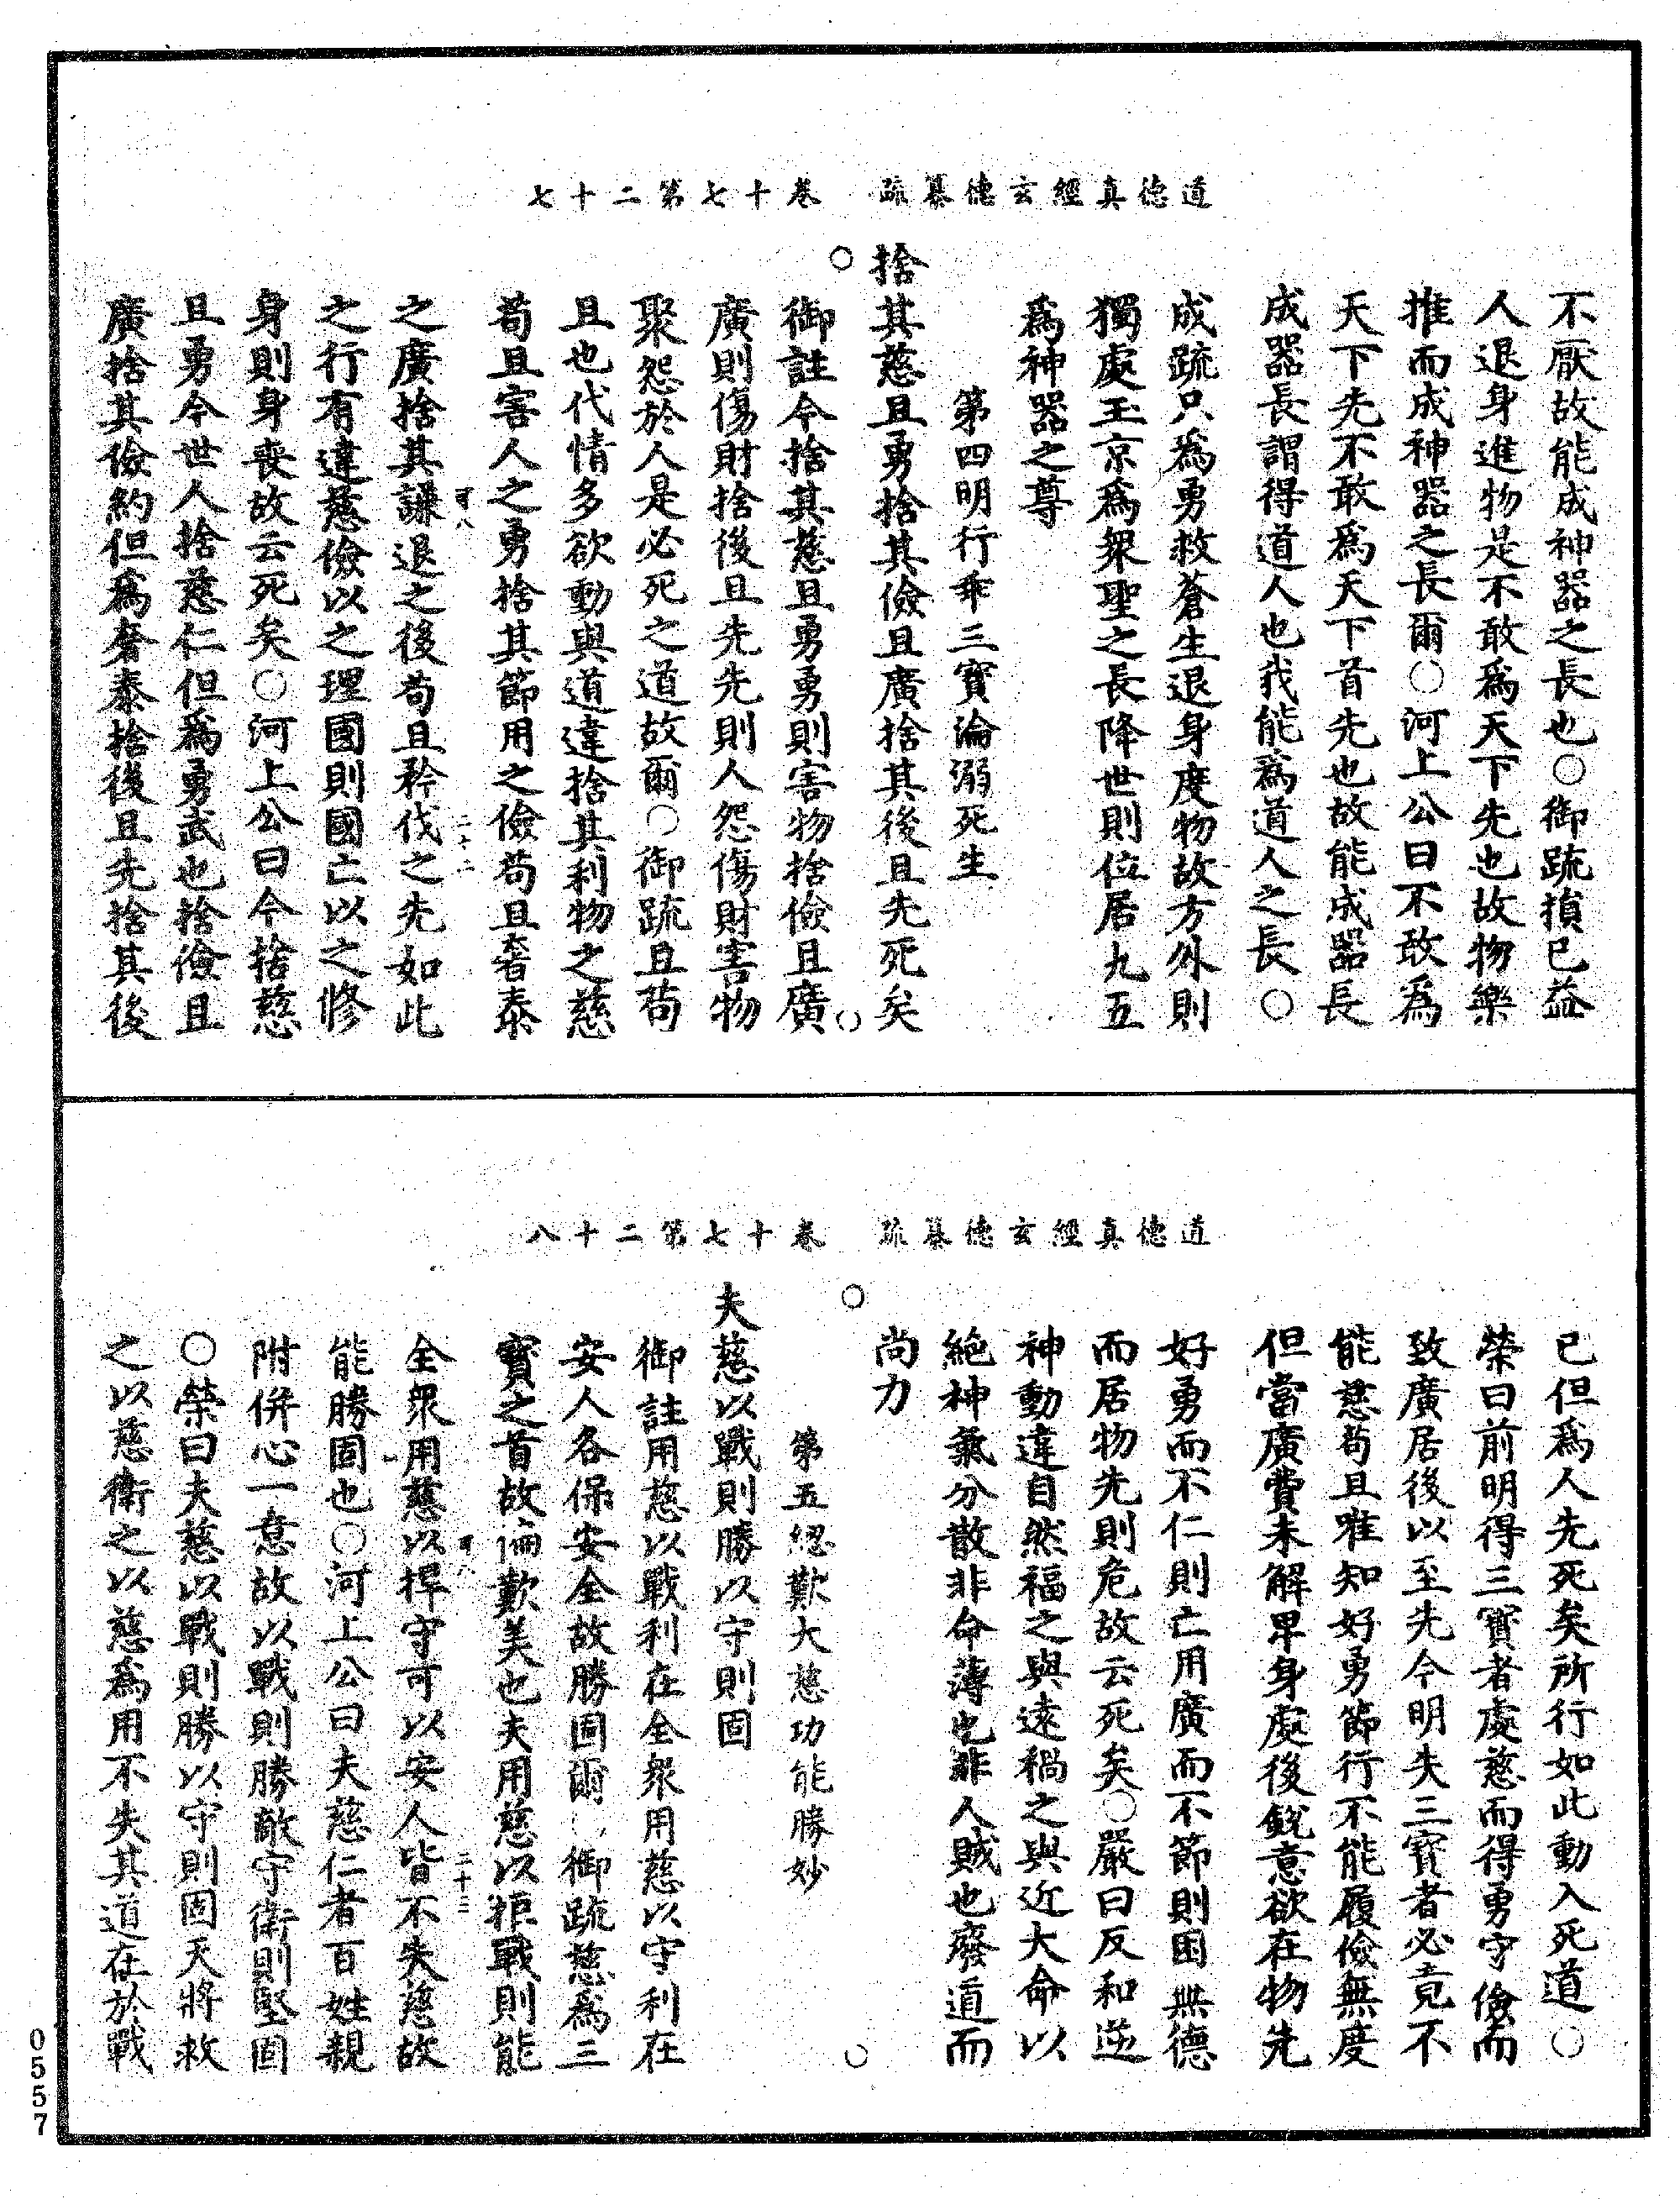 道德真經玄德纂疏　卷十七第二十七
不厭故能成神器之長也○御疏損已益
人退身進物是不敢為天下先也故物樂
推而成神器之長爾○河上公曰不敢為
天下先不敢為天下首先也故能成器長
成器長謂得道人也我能為道人之長○
成疏只為勇救蒼生退身度物故方外則
獨處玉京為衆聖之長降世則位居九五
為神器之尊
第四明行乖三寶淪溺死生
捨其慈且勇捨其儉且廣捨其後且先死矣
○御註今捨其慈且勇勇則害物捨儉且廣○
廣則傷財捨後且先先則人怨傷財害物
聚怨於人是必死之道故爾○御疏且苟
且也代情多欲動與道違捨其利物之慈
苟且害人之勇捨其節用之儉苟且奢泰
可八　二十二
之廣捨其謙退之後苟且矜伐之先如此
之行有違慈儉以之理國則國亡以之修
身則身喪故云死矣○河上公曰今捨慈
且勇今世人捨慈仁但為勇武也捨儉且
廣捨其儉約但為奢泰捨後且先捨其後
道德真經玄德纂疏　卷十七第二十八
已但為人先死矣所行如此動入死道○
榮曰前明得三寶者處慈而得勇守儉而
致廣居後以至先今明失三寶者必竟不
能慈苟且唯知好勇節行不能履儉無度
但當廣費未解卑身處後銳意欲在物先
好勇而不仁則亡用廣而不節則困無德
而居物先則危故云死矣○嚴曰反和逆
神動違自然福之與遠禍之與近大命以
絕神氣分散非命薄也非人賊也廢道而
尚力
○　○
第五緫歎大慈功能勝妙
夫慈以戰則勝以守則固
御註用慈以戰利在全衆用慈以守利在
安人各保安全故勝固爾○御疏慈為三
寶之首故偏歎美也夫用慈以拒戰則能
可八　二十三
全衆用慈以捍守可以安人皆不失慈故
能勝固也○河上公曰夫慈仁者百姓親
附併心一意故以戰則勝敵守衛則堅固
○榮曰夫慈以戰則勝以守則固天將救
之以慈衛之以慈為用不失其道在於戰
0557